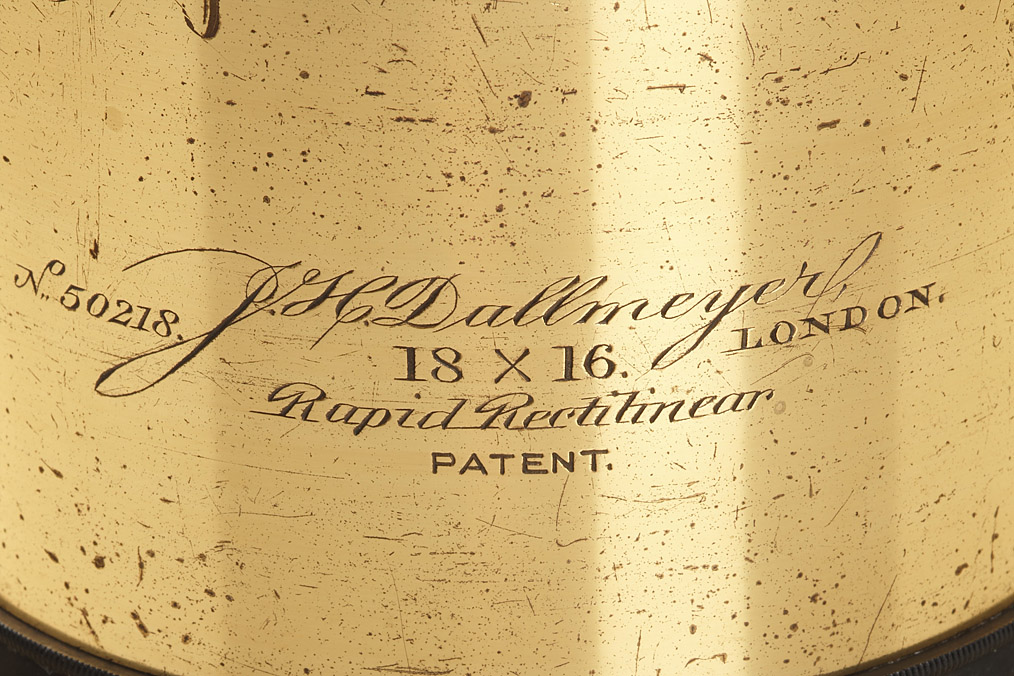 No. 50218. J.H. Dallmeyer, LONDON.
18 X 16.
Rapid Rectilinear
PATENT.